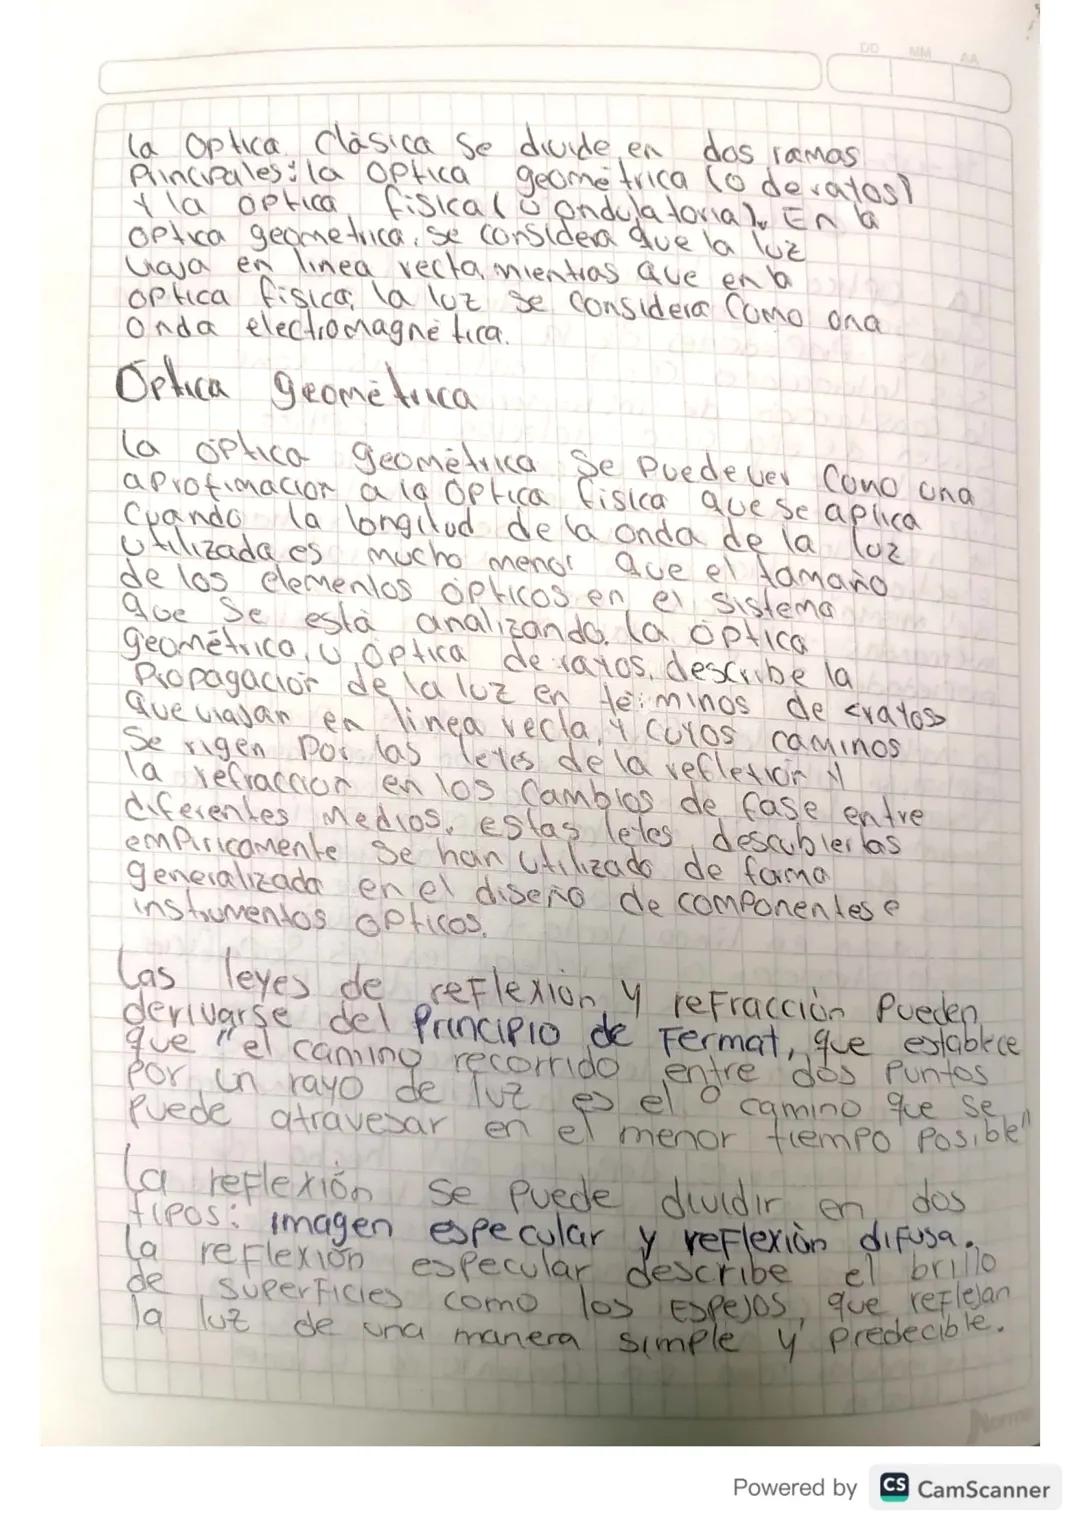 DD MM AA
la optica clásica se divide en dos ramas
Principales: la optica geométrica (o de rayos)
y la optica fisica (o ondulatoria). En la
optica geometrica, se considera que la luz
viaja en linea recta, mientras que en la
optica fisica, la luz se considera como una
onda electromagnética.
Optica geométrica
La óptica geométrica se puede ver como una
aproximación a la óptica fisica que se aplica
cuando la longitud de la onda de la luz
utilizada es mucho menor que el tamaño
de los elementos ópticos en el sistema
que se está analizando. la óptica
geométrica, u óptica de rayos, describe la
Propagación de la luz en términos de <rayos>
que viajan en linea recta, y cuyos caminos
se rigen por las leyes de la reflexión y
la refracción en los cambios de fase entre
diferentes medios. estas leyes descubiertas
empiricamente se han utilizado de forma
generalizada en el diseño de componentes e
instrumentos opticos.
Las leyes de reflexión y refracción pueden
derivarse del Principio de Fermat, que establece
que "el camino recorrido entre dos puntos
por un rayo de luz es el camino que se
puede atravesar en el menor tiempo posible"
La reflexión se puede dividir en dos
tipos: imagen especular y reflexión difusa.
La reflexión especular describe el brillo
de superficies como los espejos, que reflejan
la luz de una manera simple y predecible.
Norma
Powered by CS CamScanner